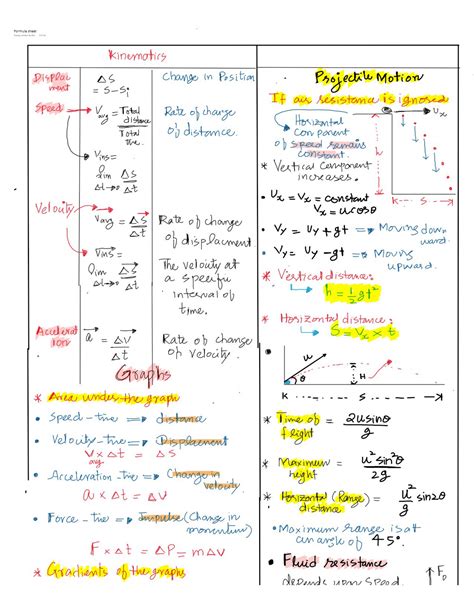 Formula sheet
Kinematics
Displac
ment
ΔS
= S-Si
Change in Position
Speed
Vavg = Total distance / Total time
Rate of change
of distance.
Vins =
lim ΔS
Δt→0 Δt
Velocity
Vavg = ΔS / Δt
Rate of change
of displacment
Vins =
lim ΔS
Δt→0 Δt
The velocity at
a specific
interval of
time.
Accelerat
ion
a = ΔV / Δt
Rate of change
of velocity.
Graphs
* Area under the graph
• Speed - time ⇒ distance
• Velocity - time ⇒ Displacement
Vavg × Δt = ΔS
• Acceleration - time ⇒ Change in
velocity
a × Δt = ΔV
• Force - time ⇒ Impulse (Change in
momentum)
F × Δt = ΔP = mΔV
* Gradients of the graphs
Projectile Motion
If air resistance is ignored
Horizontal
Component
of speed remains
constant.
Ux
S
* Vertical Component
increases.
• Ux = Vx = constant
Vx = ucosθ
• Vy = Uy + gt ⇒ Moving down
ward.
• Vy = Uy - gt ⇒ Moving
upward.
* Vertical distance:
h = ½gt²
* Horizontal distance:
S = Vx × t
u
θ
H
S
* Time of
flight
= 2usinθ / g
* Maximum
height
= u² sin²θ / 2g
* Horizontal (Range)
distance
= u² / g sin2θ
• Maximum range is at
an angle of 45°.
• Fluid resistance
depends upon speed.